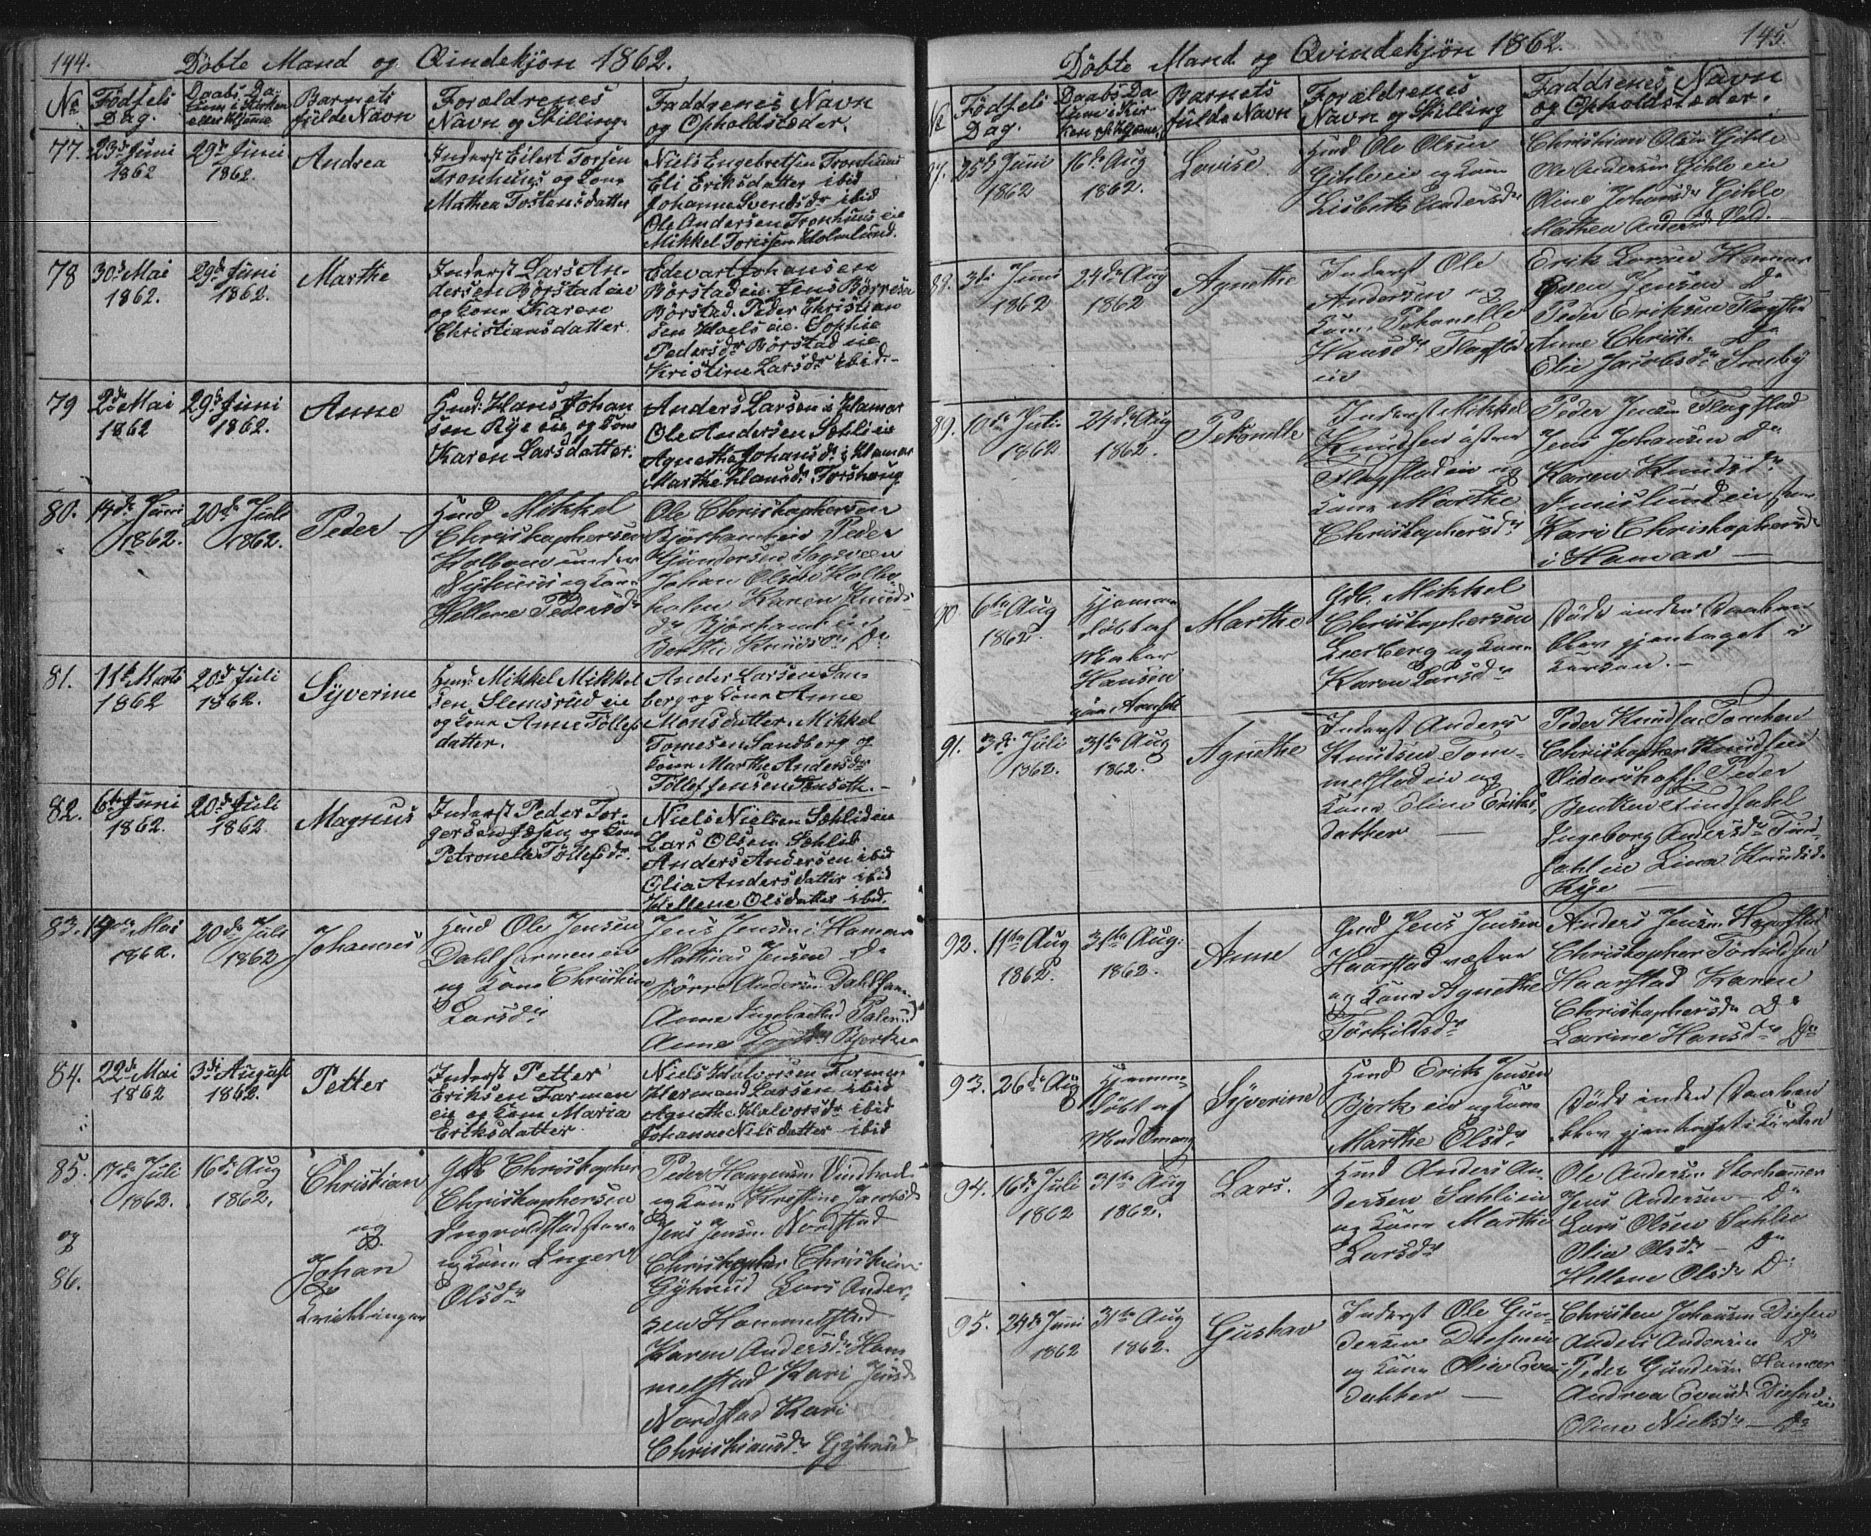 144.
Döbte Mand og Qindekjön 1862.
No
Födsels
Dag.
Daabs Da-
tum i Kirken
eller Hjeme
Barnets
fulde Navn
Forældrenes
Navn og Stilling.
Faddrenes Navn
og Opholdstæder.
77.
23de Juni
1862
29de Juni
1862.
Andrea
Inderst Eilert Torsen
Tronhuus og Kone
Mathea Tostensdatter
Niels Engebretsen Tronhuus
Eli Eriksdatter ibid
Johanne Svendsdr ibid
Ole Andersen Tronhuus eie
Mikkel Torissen Holmlund.
78
30de Mai
1862.
29de Juni
1862.
Marthe
Inderst Lars An-
dersen Börstad eie
og Kone Karen
Christiansdatter
Edevart Johansen
Börstad eie. Jens Börresen
Börstad. Peder Christian
sen Hoels eie. Sophie
Pedersdr Börstad eie
Kristine Larsdr ibid.-
79
2de Mai
1862
29de Juni
1862.
Anne
Husm. Hans Johan
sen Rye eie og Kone
Karen Larsdatter.
Anders Larsen i Hamar
Ole Andersen Sælid eie
Agnethe Johansdr i Hamar
Marthe Hansdr Torshaug
80.
14de Juni
1862.
20de Juli
1862.
Peder
Husm Mikkel
Christophersen
Kolboen under
og Kone
Hellene Pedersdr
Ole Christophersen
Peder
Gundersen
Johan Olsen Kolbo-
Karen Knuds-
dr
Berthe Knudsdr Do
81.
11te Marts
1862
20de Juli
1862.
Syverine
Husm. Mikkel Mikkel
sen Slemsrud eie
og Kone Anne Tollefs
datter.
Ander Larsen San-
berg og Kone Anne
Monsdatter. Mikkel
Tomesen Sandberg og
Kone Marthe Andersdr
Tollef Jensen Tenseth.-
82.
6te Juni
1862.
20de Juli
1862
Magnus
Inderst Peder Tor-
gersen og Kone
Petronelle Tollefsdr.
Niels Nielsen Sælid eie
Lars Olsen Sælid
Anders Andersen ibid
Olia Andersdatter ibid
Hellene Olsdatter ibid.
83.
19de Mai
1862.
20de Juli
1862
Johannes
Husm Ole Jensen
Dahlfarmen eie
og Kone Christine
Larsdr
Jens Jensen i Hamar
Mathias Jensen Do
Börre Andersen Dahlfar-
Anne
Anne
84.
22de Mai
1862
3die August
1862.
Petter
Inderst Petter
Eriksen Farmen
eie og Kone Maria
Eriksdatter.
Niels Halvorsen Farmen
Hermand Larsen ibid
Agnethe Halvorsdr ibid
Johanne Nilsdatter ibid
85.
og
86.
17de Juli
1862.
16de Aug
1862.
Christian
og
Johan
Tvillinger
Gdb Christopher
Christophersen
og Kone Inger
Olsdr
Peder Hansen
og Kone Jacobsdr
Jens Jensen Nordstad
Christopher Christians
Gyhrud Lars Ander-
sen Hommelstad
Karen Andersdr Hom
melstad Kari Jensdr
Nordstad Kari
Christiansdr Gyhrud
145.
Döbte Mand og Qvindekjön 1862.
No
Födsels
Dag.
Daabs Da-
tum i Kir
ken el. Hjeme
Barnets
fulde Navn
Forældrenes
Navn og Stilling
Faddrenes Navn
og Opholdstæder.
87.
25de Juni
1862
16de Aug
1862.
Lovise
Husm Ole Olsen
Gihle eie og Kone
Lisbeth Andersdr
Christian Olsen Gihle
Ole Andersen Gihle eie
Oline Johansdr Gihle
Mathea Andersdr
88.
3die Juni
1862
24de Aug
1862
Agnethe
Inderst Ole
Andersen og
Kone Pehonelle
Hansdr Flagstad
eie
Erik Larsen Hamar
Even Jensen Do
Peder Eriksen Flagstad
Anne Christ. Do
Elie Jacobsdr
89.
10de Juli
1862
24de Aug
1862.
Petronille
Inderst Mikkel
Knudsen östre
Flagstad eie og
Kone Marthe
Christophersdr
Peder Jensen Flagstad
Jens Johansen Do
Karen Knudsdr
Kari Christophersdr
i Hamar —
90
6te Aug
1862.
Hjemme-
döbt af
Hansen
Marthe
Gdb. Mikkel
Christophersen
Leerberg og Kone
Karen Larsdr
Döde inden Daaben
blev gjentaget i
Kirken.—
91.
3die Juli
1862.
31te Aug
1862.
Agnethe
Inderst Anders
Knudsen Tom-
melstad eie og
Kone Eline Eriks-
datter —
Peder Knudsen
Christopher Knudsen
Peder
Ingeborg Andersdr Tind-
dahl eie Lina Knudsdr
Rye —
92.
11te Aug
1862.
31te Aug.
1862.
Anne
Gmd Jens Jensen
Haarstad væstre
og Kone Agnethe
Törkildsdr
Anders Jensen
Christopher Törkildsen
Haarstad Karen
Christophersdr Do
Larine Hansdr Do
93.
26de Aug
Hjemme-
döbt af
Syverine
Husm Erik Jensen
Bjerke eie og Kone
Marthe Olsdr
Döde inden Daaben
blev gjentaget i Kirken
94.
16de Juli
1862
31te Aug
1862.
Lars.
Husm Anders An-
dersen Sahli eie
og Kone Marthe
Larsdr
Ole Andersen Storhamer
Jens Andersen — Do
Lars Olsen Sahlie
Olia Olsdr — Do
Hellene Olsdr Do
95.
24de Juni
1862
31te Aug
1862.
Gustav
Inderst Ole Gun-
dersen Diesen
og Kone Olia Even
datter —
Christen Johansen Diesen
Anders Andersen Do
Peder Gundersen Hamar
Andrea Evensd Diesen
eie
Oline Nielsdr — Do